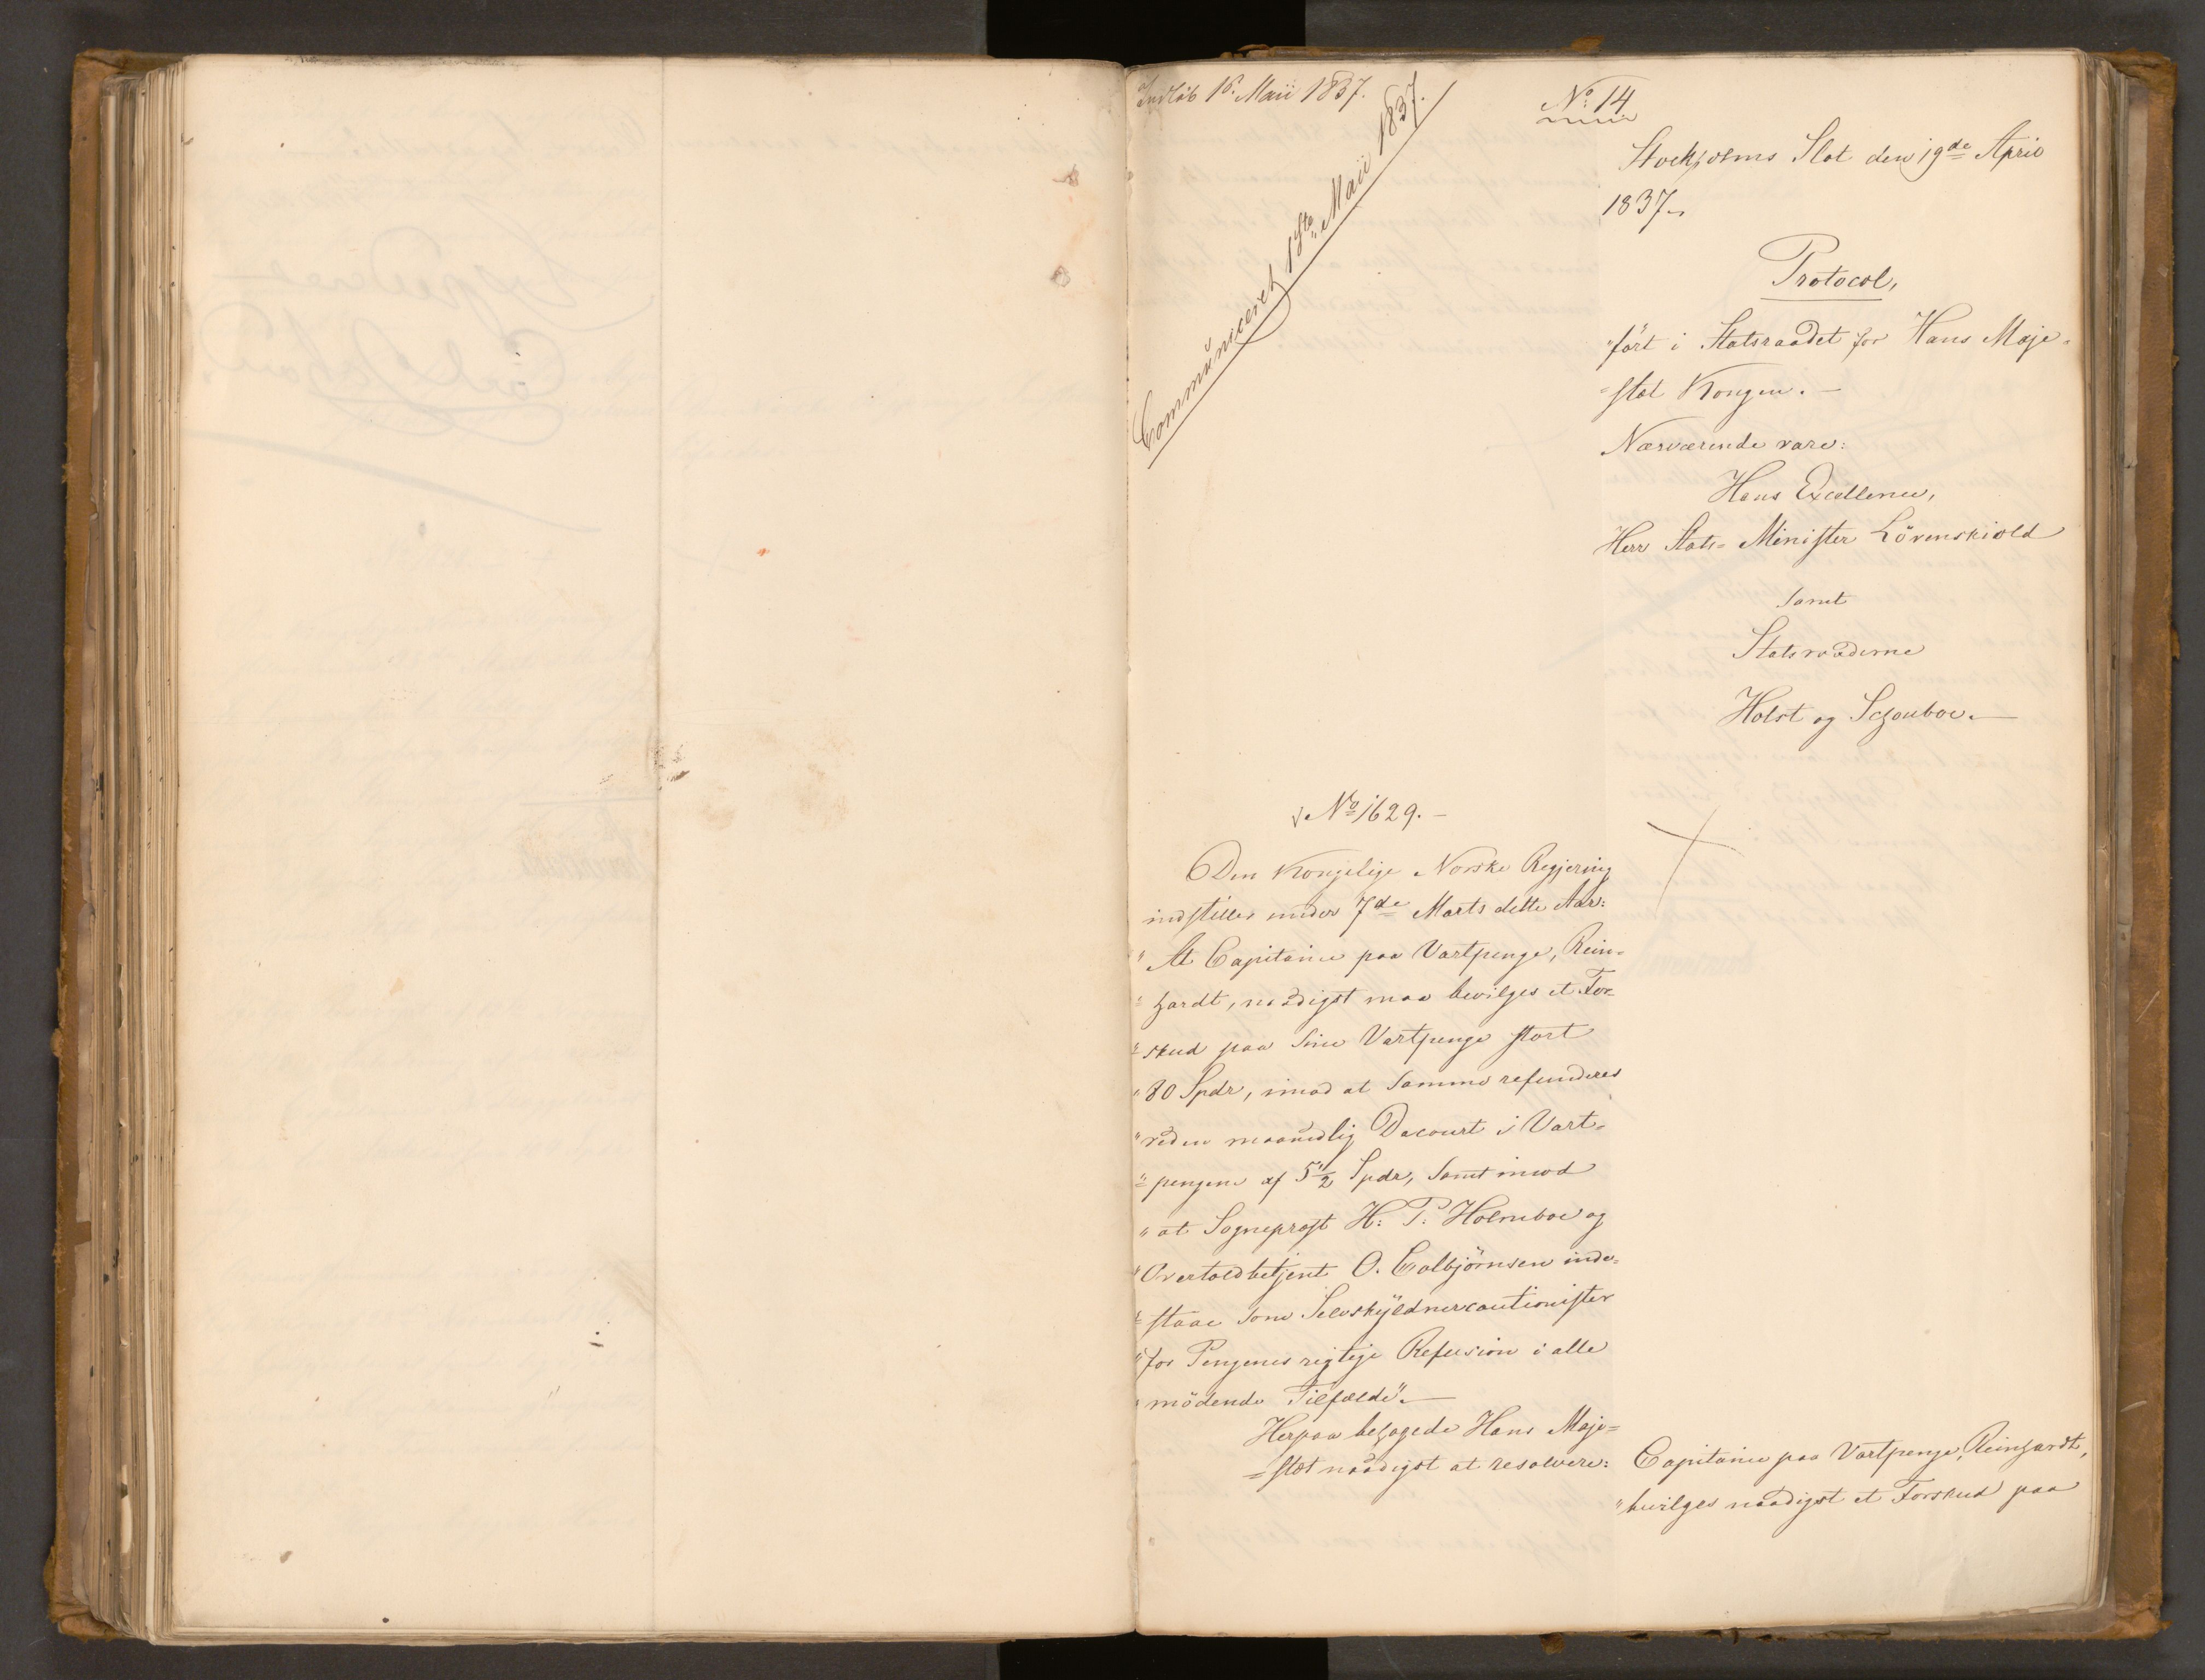 Indløb 1ste Maii 1837.
Communiceret 1ste Maii 1837.
No: 14
Stockholms Slot den 19de April
1837.
Protocol,
"ført i Statsraadet for Hans Maje-
=stæt Kongen.-
Nærværende vare:
Hans Excellence,
Herr Stats=Minister Lövenskiold
samt
Statsraaderne
Holst og Schouboe.-
No 1629.-
Den Kongelige Norske Regjering
indstiller under 7de Marts dette Aar:
"At Capitaine paa Vartpenge, Rein-
"hardt, naadigst maa bevilges et For-
"skud paa sine Vartpenge stort
"80 Spdr, imod at samme refunderes
"ved en maanedlig Decourt i Vart-
"pengene af 5 1/2 Spdr, samt imod
"at Sogneprest H: P: Holmboe og
"Overtoldbetjent O. Colbjörnsen inde-
"staae som Selvskyldnercautionister
"for Pengenes rigtige Refusion i alle
"mödende Tilfælde".-
Herpaa behagede Hans Maje=
=stæt naadigst at resolvere:
Capitaine paa Vartpenge, Reinhardt,
"bevilges naadigst et Forskud paa